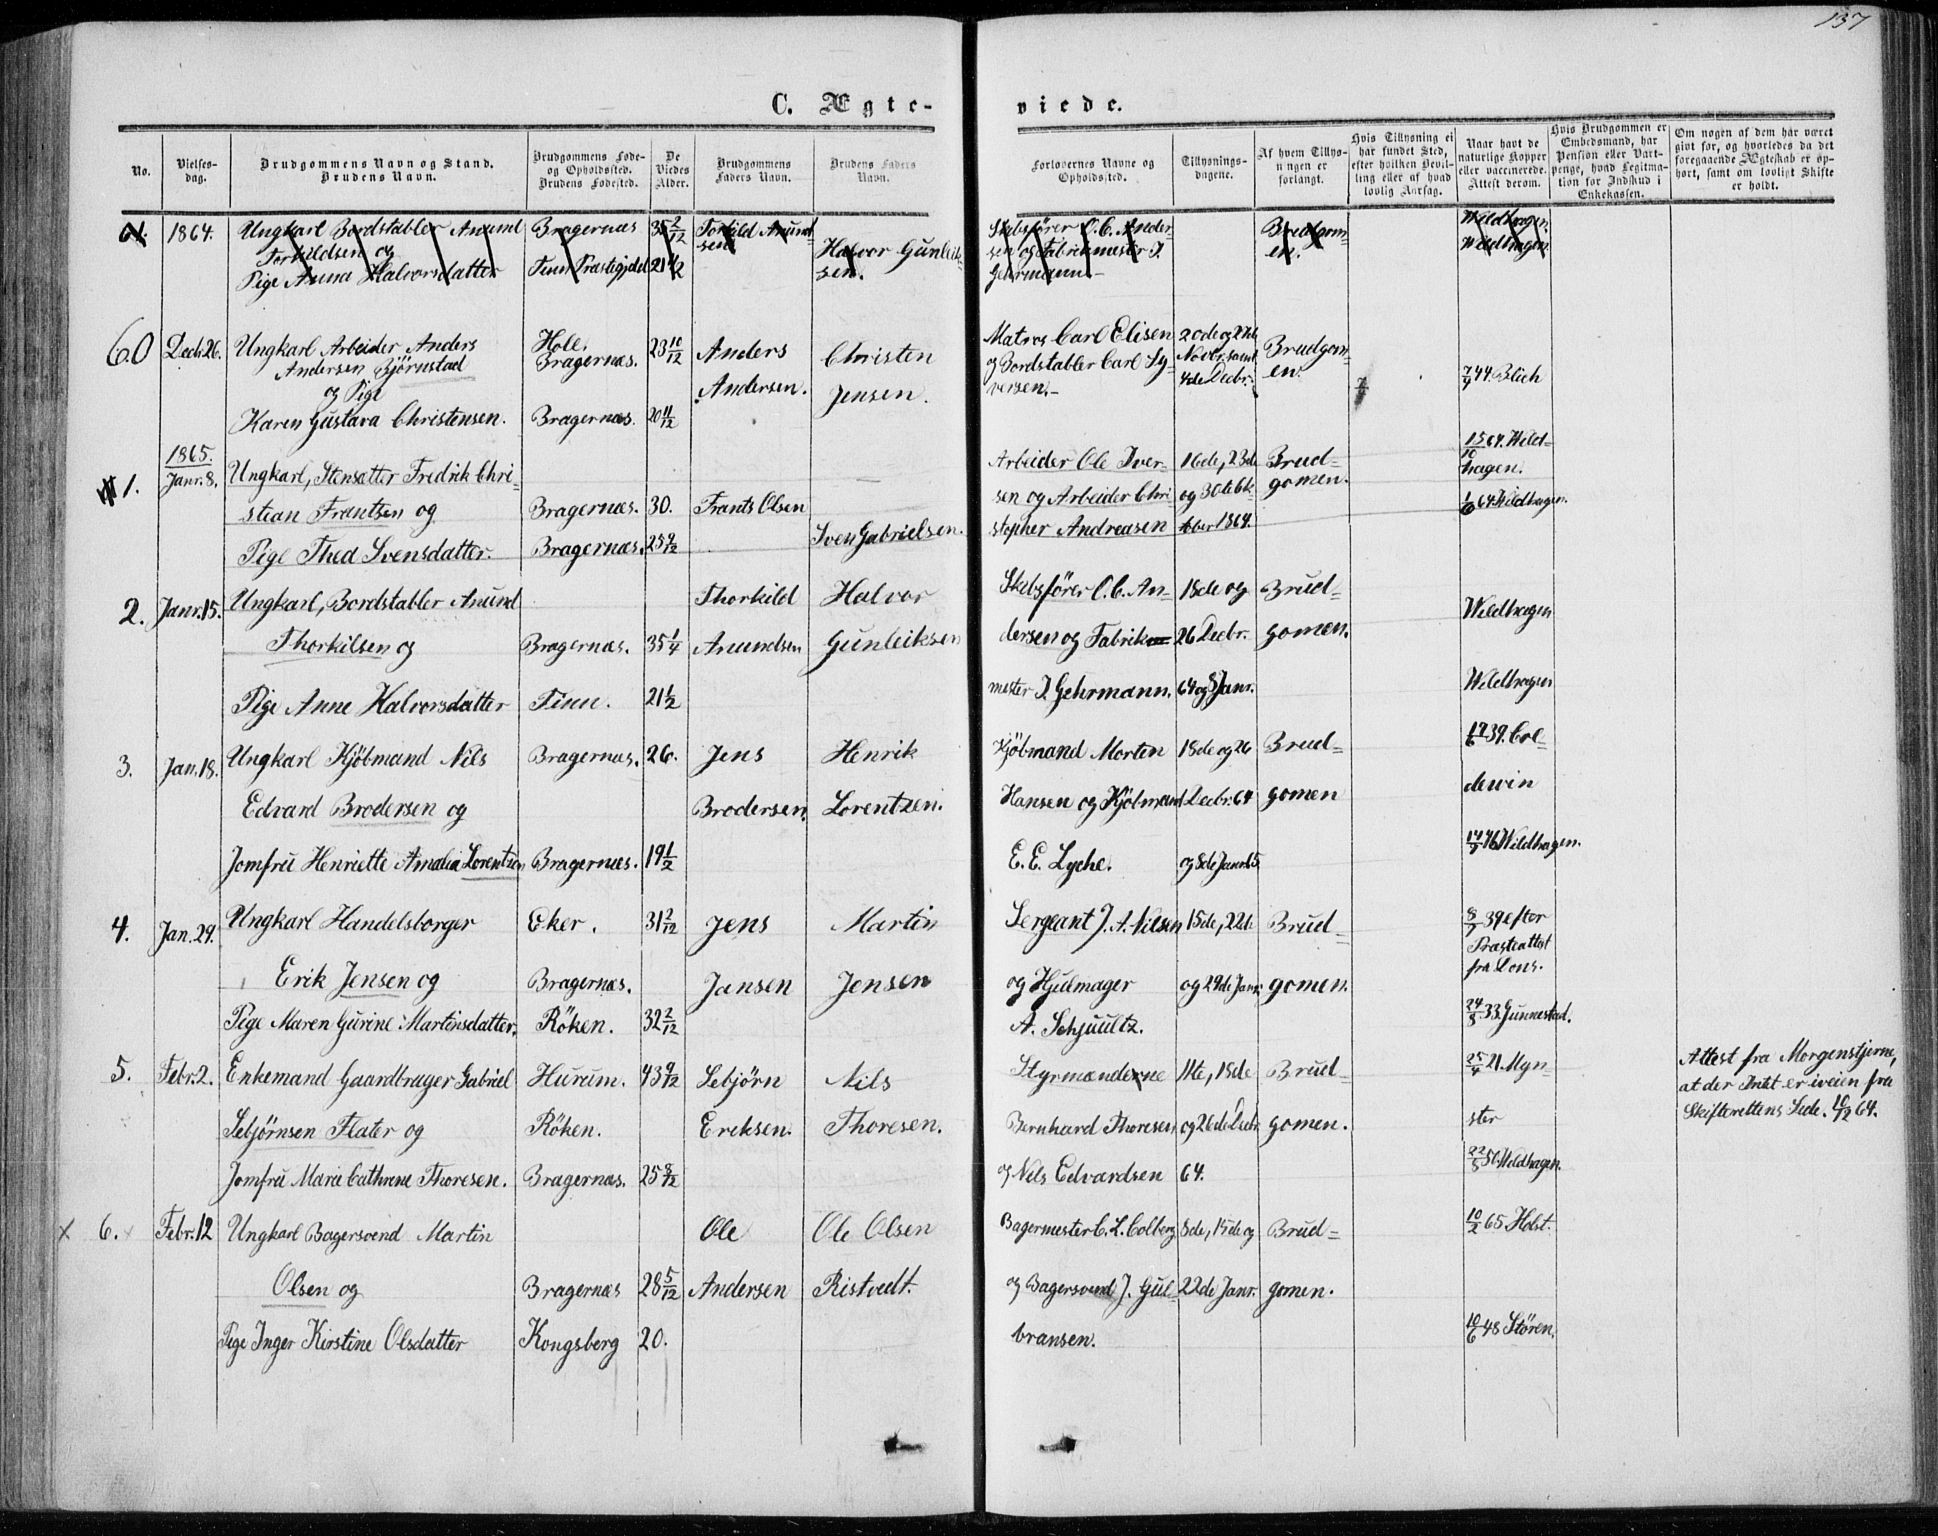 137
C. Ægte-
viede.
No.
Vielses-
dag.
Brudgommens Navn og Stand.
Brudens Navn.
Brudgommens Føde-
og Opholdssted.
Brudens Fødested.
De
Viedes
Alder.
Brudgommens
Faders Navn.
Brudens Faders
Navn.
Forlovernes Navne og
Opholdssted.
Tillysnings-
dagene.
Af hvem Tillys-
ningen er
forlangt.
Hvis Tillysning ei
har fundet Sted,
efter hvilken Bevil-
ling eller af hvad
lovlig Aarsag.
Naar havt de
naturlige Kopper
eller vaccinerede.
Attest derom.
Hvis Brudgommen er
Embedsmand, har
Pension eller Vart-
penge, hvad Legitima-
tion for Indskud i
Enkekassen.
Om nogen af dem har været
givt før, og hvorledes da det
foregaaende Ægteskab er op-
hørt, samt om lovligt Skifte
er holdt.
61. 1864. Ungkarl Bordstabler Anund Bragernæs 35 2/12 Torkild Anund- Skibsfører O. C. Ander- Brudgom- Wildhagen.
Torkildsen og sen Halvor Gunleik- sen og Fabrikmester J. en. Wildhagen.
Pige Anna Halvorsdatter Finn Præstegjeld 21 1/2 sen. Gehrmann.-
60 Decb. 26. Ungkarl Arbeider Anders Hole. 23 10/12 Anders Christen Matros Carl Elisen 20de og 27de Brudgom-
Andersen Bjørnstad Bragernæs. Andersen. Jensen. og Bordstabler Carl Sy- Novbr. samt en. 7/9 44. Blich
og Pige versen.- 4de Decbr.
Karen Gustava Christensen. Bragernæs. 20 11/12
1865.
1. Janr. 8. Ungkarl, Stensætter Fredrik Chri- Arbeider Ole Iver- 16de, 23de Brud- 15/10 64. Wild-
stian Frantsen og Bragernæs. 30. Frants Olsen sen og Arbeider Chri- og 30te Ok- gomen. hagen.
Pige Thea Svensdatter. Bragernæs. 25 9/12 Sven Gabrielsen. stopher Andreasen tober 1864. 1/6 64 Wildhagen.
2. Janr. 15. Ungkarl, Bordstabler Anund Thorkild Halvor Skibsfører O. C. An- 18de og Brud- Wildhagen
Thorkilsen og Bragernæs. 35 1/4 Anundsen Gunleiksen dersen og Fabrik- 26 Decbr. gomen.
Pige Anne Halvorsdatter Finn. 21 1/2 mester J. Gehrmann. 64 og 8 Janr. Wildhagen
3. Jan. 18. Ungkarl Kjöbmand Nils Bragernæs. 26. Jens Henrik Kjöbmand Morten 18de og 26 Brud- 17/6 39. Col-
Edvard Brodersen og Brodersen. Lorentzen. Hansen og Kjöbmand Decbr: 64 gomen dewin
Jomfru Henriette Amalia Lorentzen Bragernæs. 19 1/2 E. E. Lyche. og 8de Janr. 65. 14/9 46 Wildhagen.
4. Jan. 29. Ungkarl Handelsborger Eker. 31 2/12 Jens Martin Sergeant J. A. Nilsen 15de, 22de Brud- 8/7 39 efter
Erik Jensen og Bragernæs. Jansen Jensen og Hjulmager og 29de Janr. gomen. Præsteattest
fra Lous.
Pige Maren Gurine Martinsdatter. Röken. 32 2/12 A. Schjuultz. 24/8 33. Gunnestad.
5. Febr. 2. Enkemand Gaardbruger Gabriel Hurum. 43 9/12 Sebjörn Nils Styrmændene 11te, 18de Brud- 25/4 21. Myn- Attest fra Morgenstjerne,
at der Intet er iveien fra
Sebjørnsen Flater og Röken. Ereksen. Thoresen. Bernhard Thoresen og 26de Decbr. gomen. ster Skifterettens Side. 10/12 64.
Jomfru Marie Cathrine Thoresen. Bragernæs. 25 8/12 og Nils Edvardsen 64. 22/5 50. Wildhagen.
x 6. Febr. 12 Ungkarl Bagersvend Martin Ole Ole Olsen Bagermester C. L. Colberg 8de, 15de og Brud- 10/2 65 Holst.
Olsen og Bragernæs 28 5/12 Andersen Ristvedt. og Bagersvend J. Gul- 22de Janr. gomen.
Pige Inger Kirstine Olsdatter Kongsberg 20. bransen. 10/6 48 Stören.